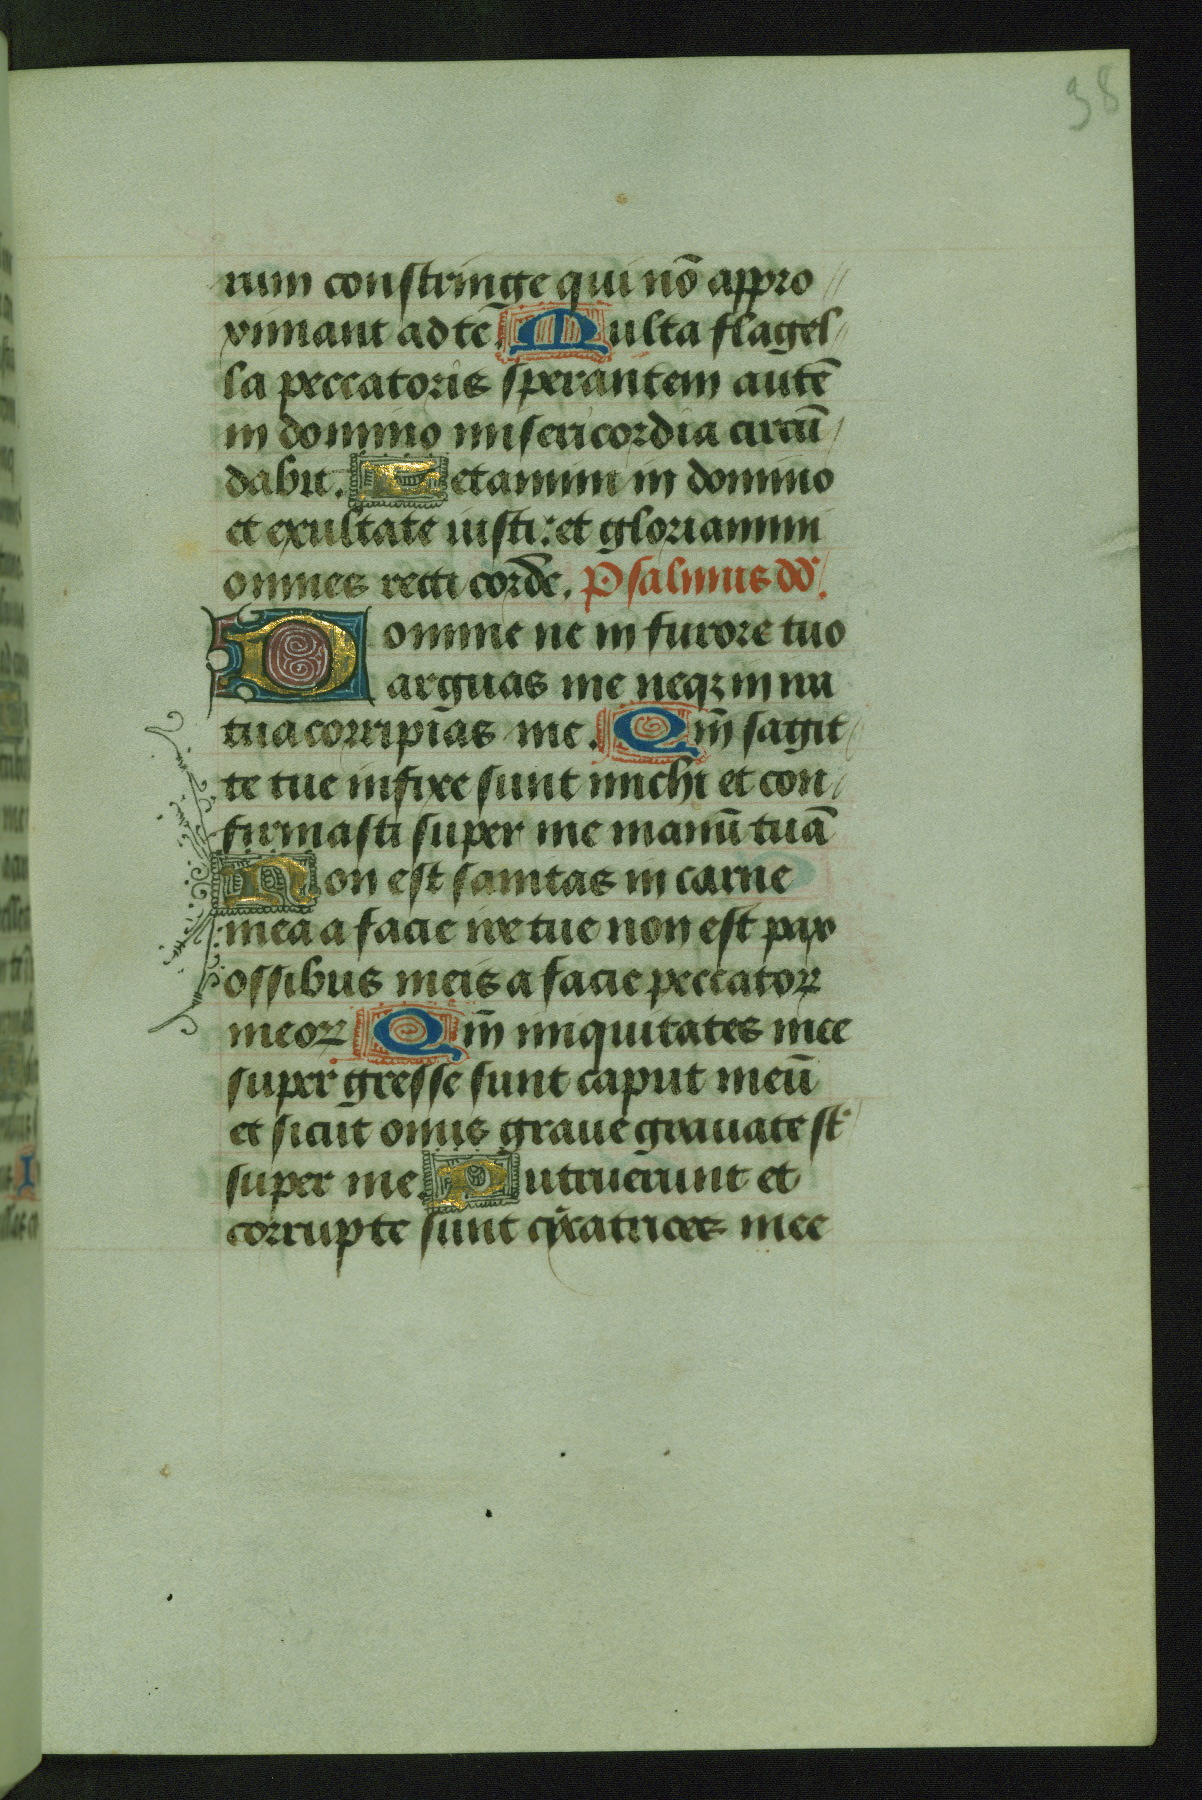 38
rum constringe qui nō appro
ximant ad te. Multa flagel
la peccatoris sperantem autē
in domino misericordia circū
dabit. Letamini in domino
et exultate iusti: et gloriamini
omnes recti corde. Psalmus dd.
Domine ne in furore tuo
arguas me neqꝫ in ira
tua corripias me. Qm̄ sagit
te tue infixe sunt michi et con
firmasti super me manū tuā
Non est sanitas in carne
mea a facie ire tue non est pax
ossibus meis a facie peccatoꝝ
meoꝝ Qm̄ iniquitates mee
super gresse sunt caput meū
et sicut onus graue grauate st̄
super me. Putruerunt et
corrupte sunt cycatrices mee